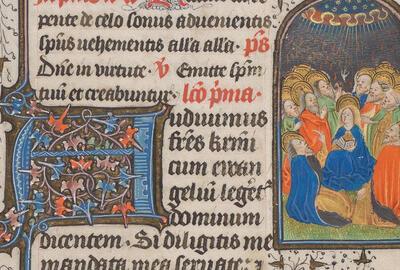 pente de celo sonus advenientis
spūs uehementis alla alla. ps
Dñe in virtute. v Emitte spm
tuū et creabuntur. lcō pma.
Audiuimus
frēs krmi
cum ewan
geliū leget
dominum
dicentem. Si diligitis me
mandata mea seruate.